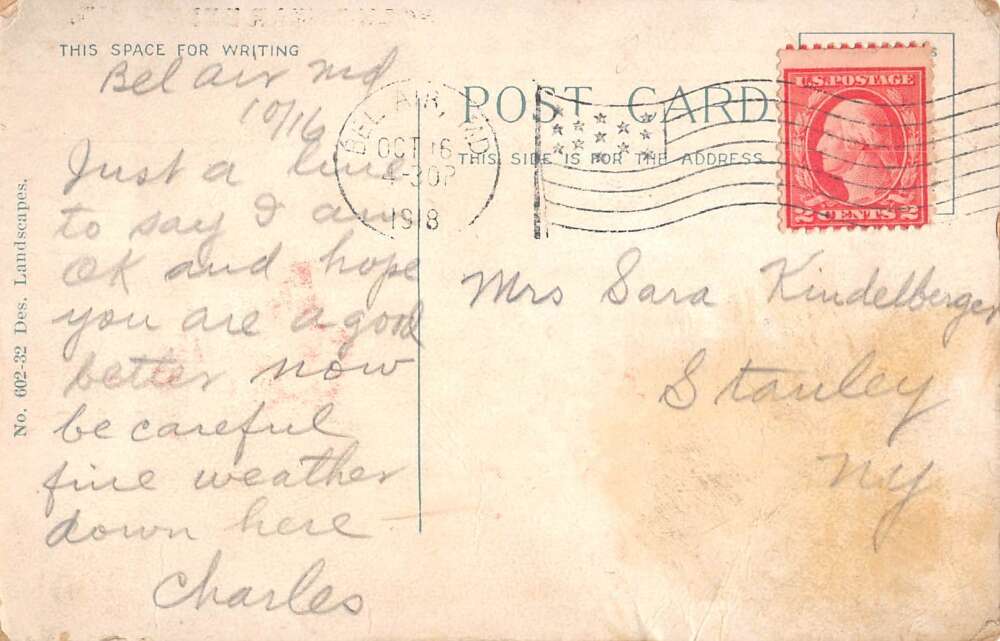 THIS SPACE FOR WRITING
Bel air Md
10/16
Just a line
to say I am
OK and hope
you are a good
better now
be careful
fine weather
down here
Charles
No. 602-32 Des. Landscapes.
POST CARD
THIS SIDE IS FOR THE ADDRESS
BEL AIR, MD
OCT 16
4-30P
1918
U.S. POSTAGE
2 CENTS 2
Mrs Sara Kindelberger
Stanley
NY